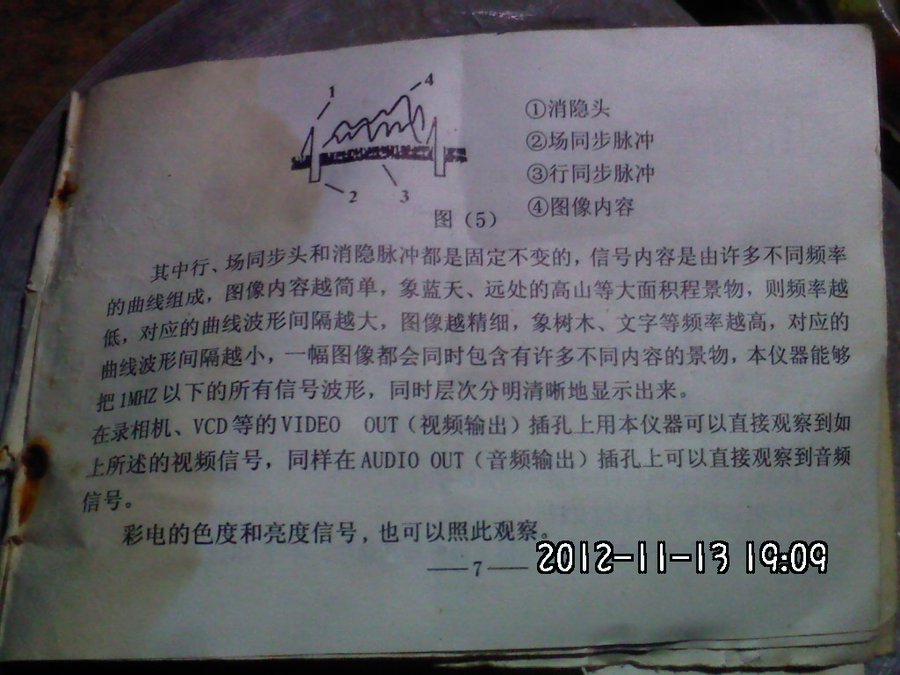 1
4
2
3
①消隐头
②场同步脉冲
③行同步脉冲
④图像内容
图（5）
其中行、场同步头和消隐脉冲都是固定不变的，信号内容是由许多不同频率
的曲线组成，图像内容越简单，象蓝天、远处的高山等大面积程景物，则频率越
低，对应的曲线波形间隔越大，图像越精细，象树木、文字等频率越高，对应的
曲线波形间隔越小，一幅图像都会同时包含有许多不同内容的景物，本仪器能够
把1MHZ以下的所有信号波形，同时层次分明清晰地显示出来。
在录相机、VCD等的VIDEO OUT（视频输出）插孔上用本仪器可以直接观察到如
上所述的视频信号，同样在AUDIO OUT（音频输出）插孔上可以直接观察到音频
信号。
彩电的色度和亮度信号，也可以照此观察。
—7—
2012-11-13 19:09